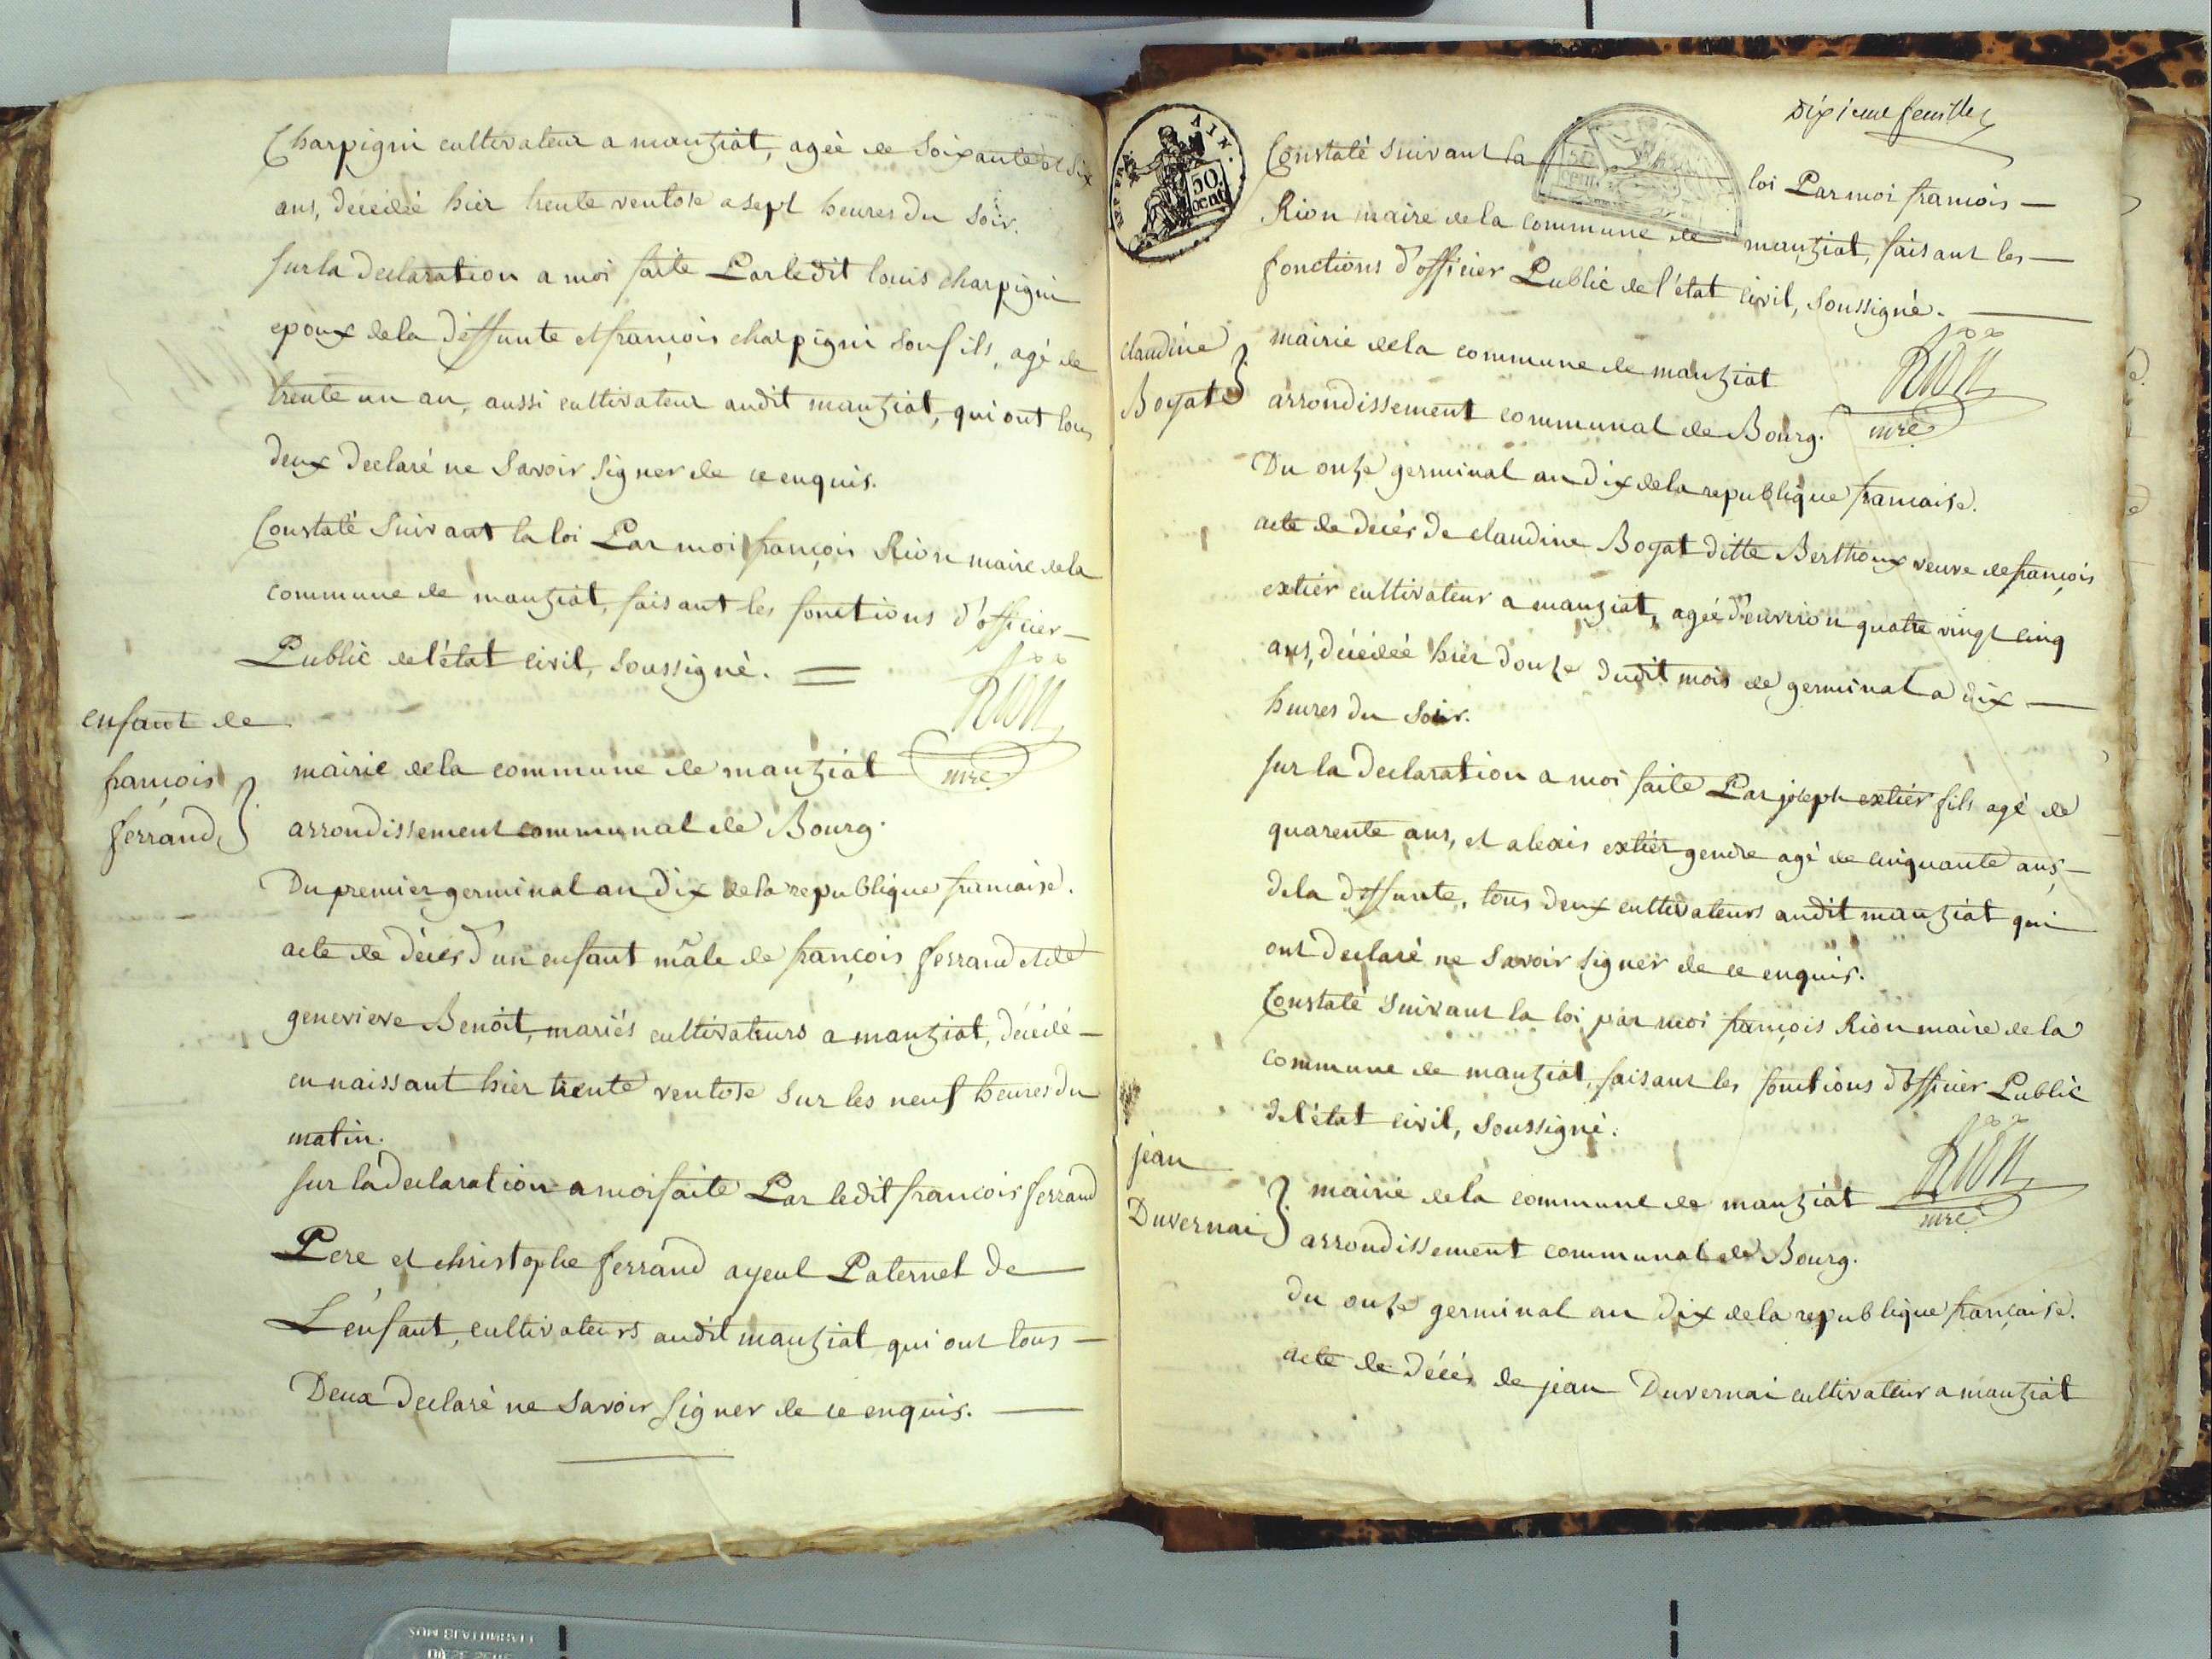 Charpigni cultivateur a manziat, agée de Soixante et Six
ans, décédée hier trente ventose a sept heures du Soir.
Sur la declaration a moi faite Par ledit louis charpigni
epoux dela deffunte et françois charpigni Son fils, agé de
trente un an, aussi cultivateur audit manziat, qui ont tous
deux declaré ne Savoir Signer de ce enquis.
Constaté Suivant la loi Par moi françois Rion maire dela
commune de manziat, faisant les fonctions d'officier
Public de l'état civil, Soussigné.
Rion
mre
enfant de
francois
ferrand
mairie dela commune de manziat
arrondissement communal de Bourg.
Du premier germinal an Dix dela republique francaise.
acte de décès d'un enfant mâle de françois ferrand et de
genevieve Benoit, mariés cultivateurs a manziat, décédé
en naissant hier trente ventose Sur les neuf heures du
matin.
Sur la declaration a moi faite Par ledit francois ferrand
Pere et christophe ferrand ayeul Paternel De
L'enfant, cultivateurs audit manziat qui ont tous
Deux declaré ne Savoir Signer de ce enquis.
AIN.
50
cent
Dixieme feuille
Constaté Suivant la loi Par moi francois
Rion maire dela commune de manziat, faisant les
fonctions d'officier Public de l'état civil, Soussigné.
Rion
mre
claudine
Bogat
mairie dela commune de manziat
arrondissement communal de Bourg.
Du onze germinal an Dix dela republique francaise.
acte de décès De claudine Bogat ditte Berthoux veuve de françois
extier cultivateur a manziat, agée d'environ quatre vingt cinq
ans, décédée hier douze dudit mois de germinal a dix
heures du Soir.
Sur la declaration a moi faite Par joseph extier fils agé de
quarente ans, et alexis extier gendre agé de cinquante ans,
dela deffunte, tous deux cultivateurs audit manziat qui
ont declaré ne Savoir Signer de ce enquis.
Constaté Suivant la loi par moi françois Rion maire de la
commune de manziat, faisant les fonctions d'officier Public
de l'état civil, Soussigné.
Rion
mre
jean
Duvernai
mairie dela commune de manziat
arrondissement communal de Bourg.
du onze germinal an dix dela republique française.
acte de décès de jean Duvernai cultivateur a manziat